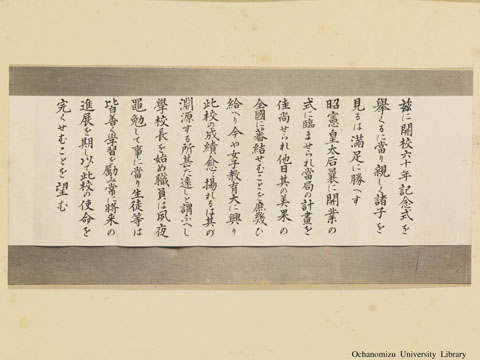 茲に開校六十年記念式を
擧くるに當り親しく諸子を
見るは滿足に勝へす
昭憲皇太后曩に開業の
式に臨ませられ當局の計畫を
佳尚せられ他日其の美果の
全國に蕃結せむことを庶幾ひ
給へり今や女子教育大に興り
此校の成績愈揚れるは其の
淵源する所甚た遠しと謂ふへし
學校長を始め職員は夙夜
黽勉して事に當り生徒等は
皆善く學習を勵み常に將來の
進展を期し以て此校の使命を
完くせむことを望む
Ochanomizu University Library